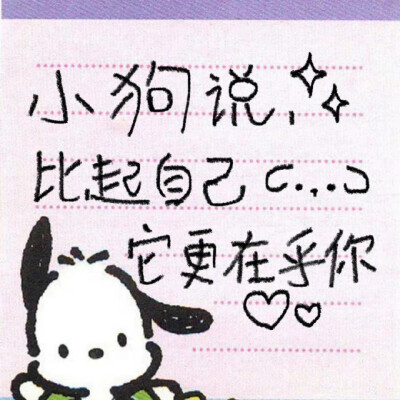 小狗说，
比起自己 C.,.Ɔ
它更在乎你